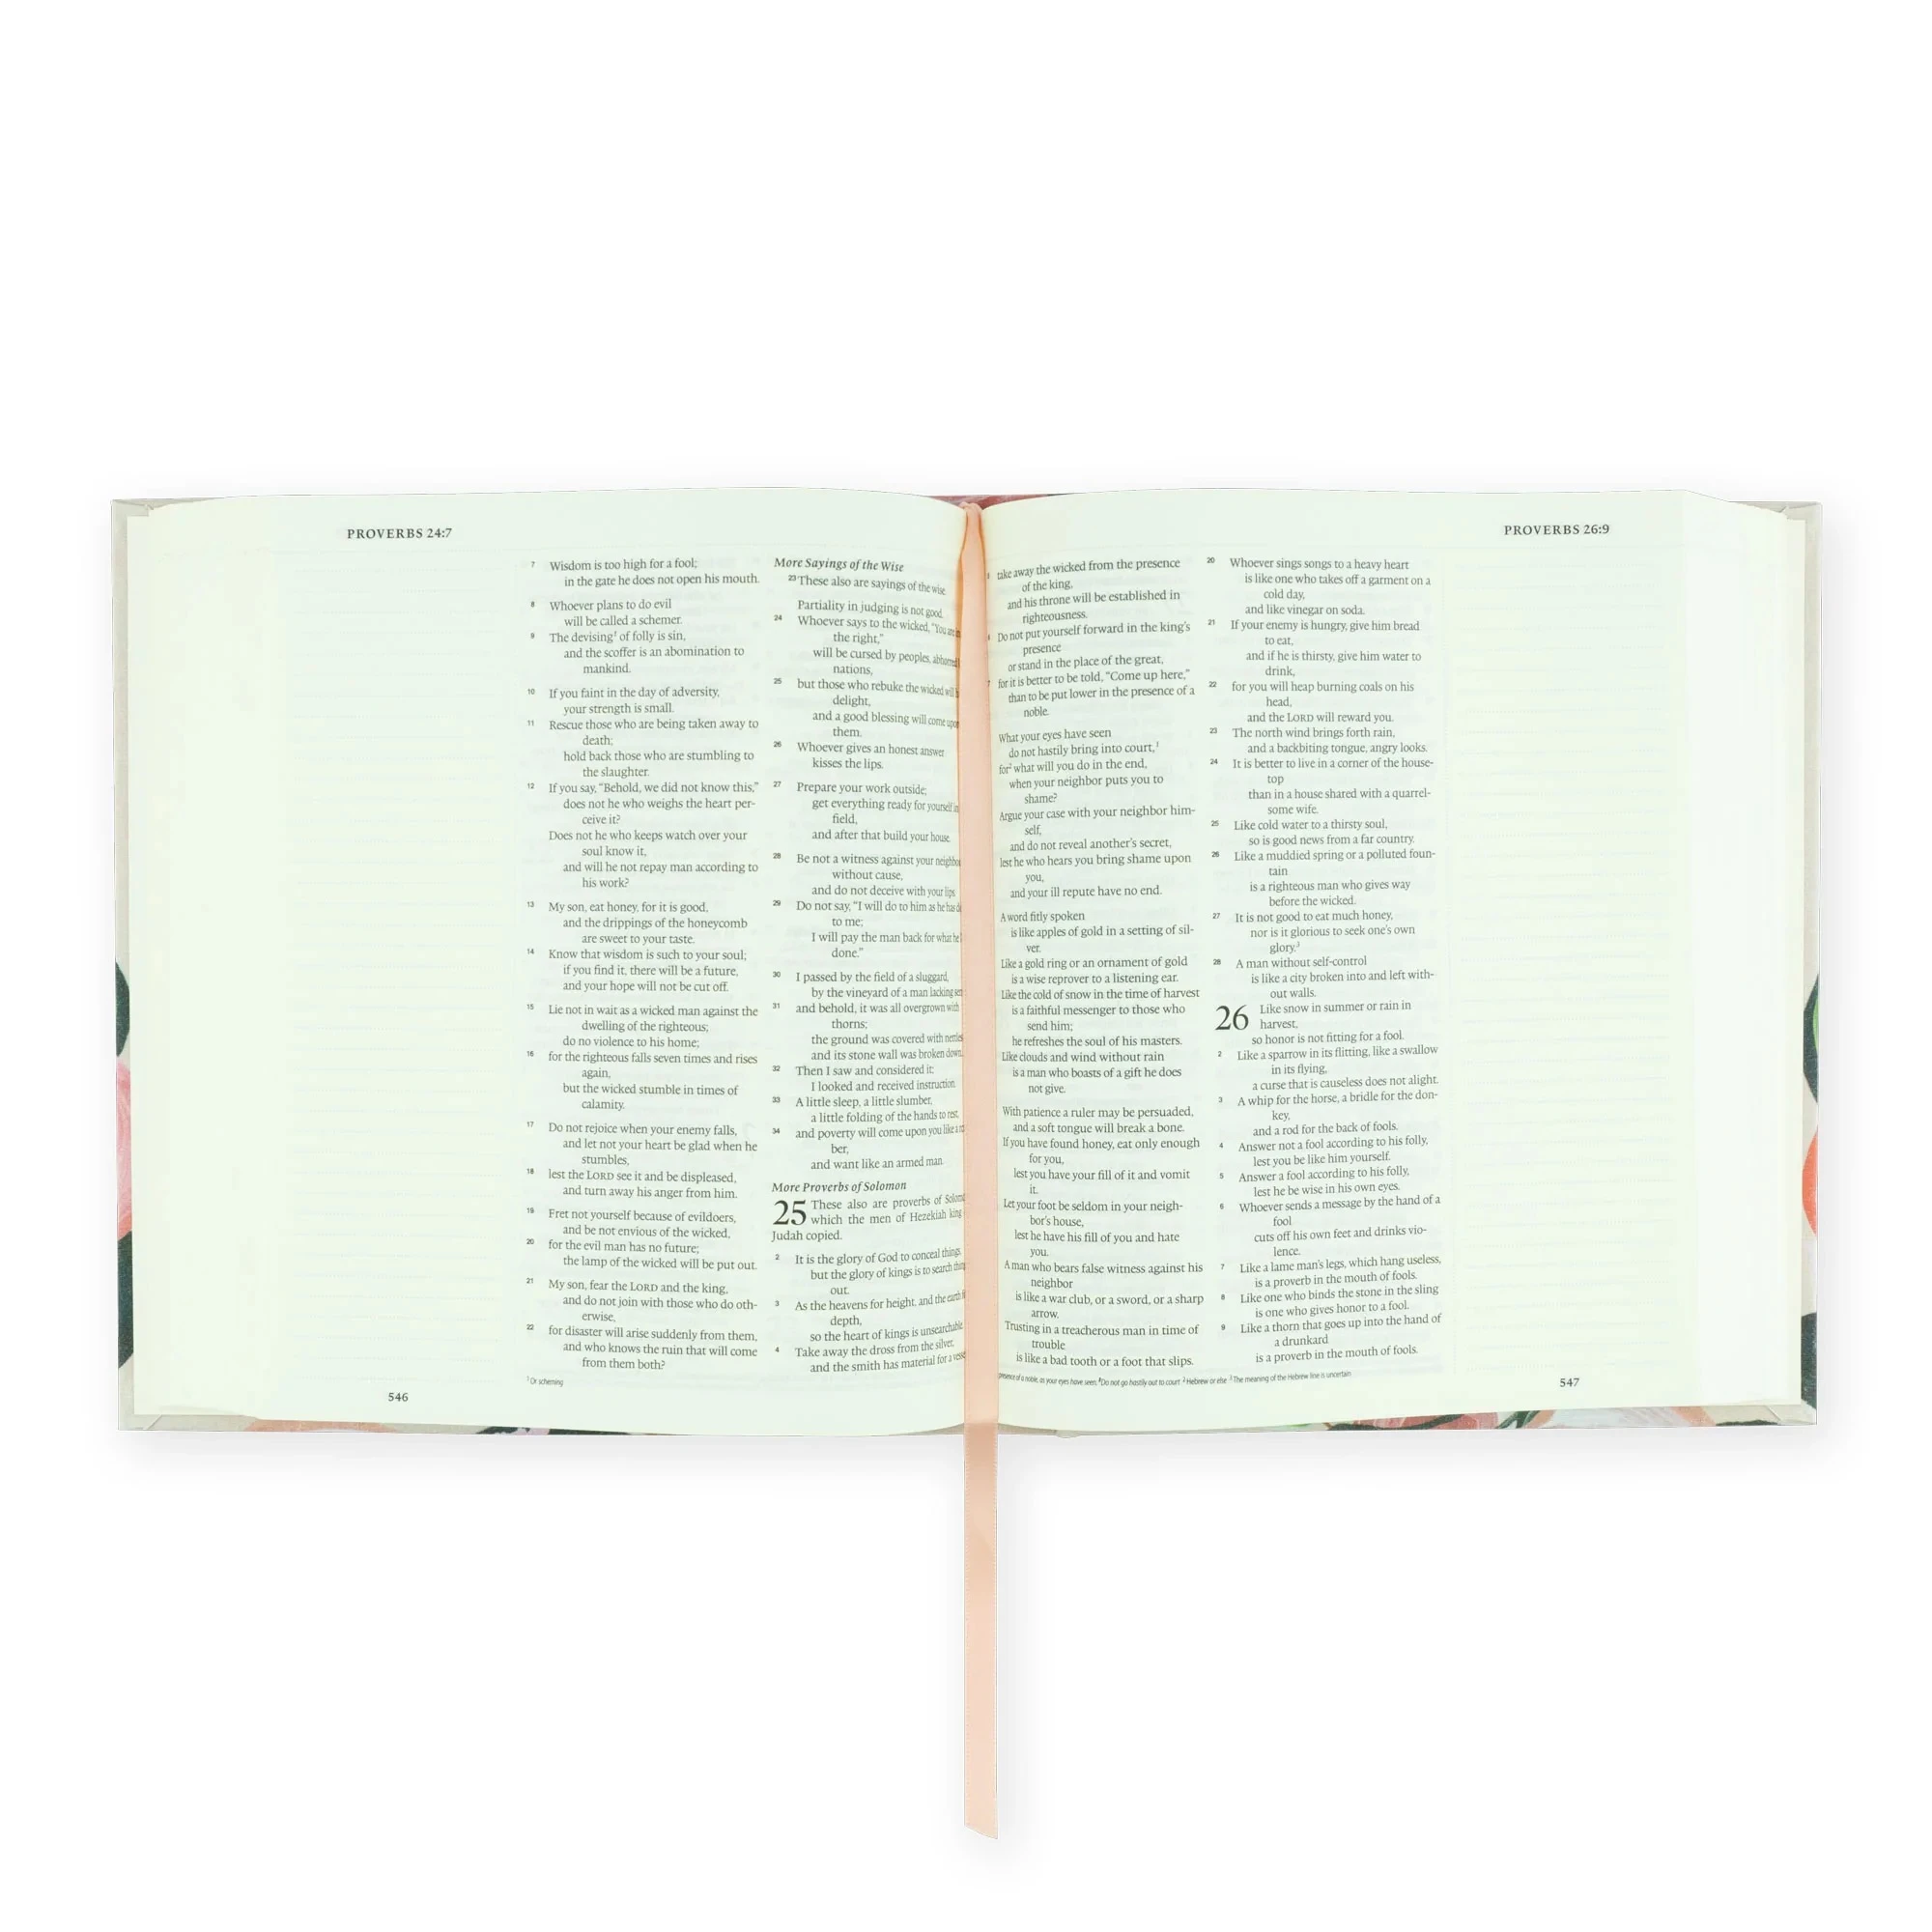 PROVERBS 24:7
7 Wisdom is too high for a fool;
in the gate he does not open his mouth.
8 Whoever plans to do evil
will be called a schemer.
9 The devising1 of folly is sin,
and the scoffer is an abomination to
mankind.
10 If you faint in the day of adversity,
your strength is small.
11 Rescue those who are being taken away to
death;
hold back those who are stumbling to
the slaughter.
12 If you say, “Behold, we did not know this,”
does not he who weighs the heart per-
ceive it?
Does not he who keeps watch over your
soul know it,
and will he not repay man according to
his work?
13 My son, eat honey, for it is good,
and the drippings of the honeycomb
are sweet to your taste.
14 Know that wisdom is such to your soul;
if you find it, there will be a future,
and your hope will not be cut off.
15 Lie not in wait as a wicked man against the
dwelling of the righteous;
do no violence to his home;
16 for the righteous falls seven times and rises
again,
but the wicked stumble in times of
calamity.
17 Do not rejoice when your enemy falls,
and let not your heart be glad when he
stumbles,
18 lest the LORD see it and be displeased,
and turn away his anger from him.
19 Fret not yourself because of evildoers,
and be not envious of the wicked,
20 for the evil man has no future;
the lamp of the wicked will be put out.
21 My son, fear the LORD and the king,
and do not join with those who do oth-
erwise,
22 for disaster will arise suddenly from them,
and who knows the ruin that will come
from them both?
1 Or scheming
546
More Sayings of the Wise
23 These also are sayings of the wise.
Partiality in judging is not good.
24 Whoever says to the wicked, “You are in
the right,”
will be cursed by peoples, abhorred
nations,
25 but those who rebuke the wicked will
delight,
and a good blessing will come upon
them.
26 Whoever gives an honest answer
kisses the lips.
27 Prepare your work outside;
get everything ready for yourself in
field,
and after that build your house.
28 Be not a witness against your
without cause,
and do not deceive with your lips.
29 Do not say, “I will do to him as he has
to me;
I will pay the man back for what he
done.”
30 I passed by the field of a sluggard,
by the vineyard of a man lacking
31 and behold, it was all overgrown with
thorns;
the ground was covered with
and its stone wall was broken down.
32 Then I saw and considered it;
I looked and received instruction.
33 A little sleep, a little slumber,
a little folding of the hands to rest,
34 and poverty will come upon you like a
ber,
and want like an armed man.
More Proverbs of Solomon
25 These also are proverbs of
which the men of Hezekiah king
Judah copied.
2 It is the glory of God to conceal things,
but the glory of kings is to search
out.
3 As the heavens for height, and the earth
depth,
so the heart of kings is unsearchable.
4 Take away the dross from the silver,
and the smith has material for a
PROVERBS 26:9
take away the wicked from the presence
of the king,
and his throne will be established in
righteousness.
Do not put yourself forward in the king’s
presence
or stand in the place of the great,
for it is better to be told, “Come up here,”
than to be put lower in the presence of a
noble.
What your eyes have seen
do not hastily bring into court,1
for2 what will you do in the end,
when your neighbor puts you to
shame?
Argue your case with your neighbor him-
self,
and do not reveal another’s secret,
lest he who hears you bring shame upon
you,
and your ill repute have no end.
A word fitly spoken
is like apples of gold in a setting of sil-
ver.
Like a gold ring or an ornament of gold
is a wise reprover to a listening ear.
Like the cold of snow in the time of harvest
is a faithful messenger to those who
send him;
he refreshes the soul of his masters.
Like clouds and wind without rain
is a man who boasts of a gift he does
not give.
With patience a ruler may be persuaded,
and a soft tongue will break a bone.
If you have found honey, eat only enough
for you,
lest you have your fill of it and vomit
it.
Let your foot be seldom in your neigh-
bor’s house,
lest he have his fill of you and hate
you.
A man who bears false witness against his
neighbor
is like a war club, or a sword, or a sharp
arrow.
Trusting in a treacherous man in time of
trouble
is like a bad tooth or a foot that slips.
20 Whoever sings songs to a heavy heart
is like one who takes off a garment on a
cold day,
and like vinegar on soda.
21 If your enemy is hungry, give him bread
to eat,
and if he is thirsty, give him water to
drink,
22 for you will heap burning coals on his
head,
and the LORD will reward you.
23 The north wind brings forth rain,
and a backbiting tongue, angry looks.
24 It is better to live in a corner of the house-
top
than in a house shared with a quarrel-
some wife.
25 Like cold water to a thirsty soul,
so is good news from a far country.
26 Like a muddied spring or a polluted foun-
tain
is a righteous man who gives way
before the wicked.
27 It is not good to eat much honey,
nor is it glorious to seek one’s own
glory.3
28 A man without self-control
is like a city broken into and left with-
out walls.
26 Like snow in summer or rain in
harvest,
so honor is not fitting for a fool.
2 Like a sparrow in its flitting, like a swallow
in its flying,
a curse that is causeless does not alight.
3 A whip for the horse, a bridle for the don-
key,
and a rod for the back of fools.
4 Answer not a fool according to his folly,
lest you be like him yourself.
5 Answer a fool according to his folly,
lest he be wise in his own eyes.
6 Whoever sends a message by the hand of a
fool
cuts off his own feet and drinks vio-
lence.
7 Like a lame man’s legs, which hang useless,
is a proverb in the mouth of fools.
8 Like one who binds the stone in the sling
is one who gives honor to a fool.
9 Like a thorn that goes up into the hand of
a drunkard
is a proverb in the mouth of fools.
presence of a noble, as your eyes have seen. Do not go hastily out to court 2 Hebrew or else 3 The meaning of the Hebrew line is uncertain
547